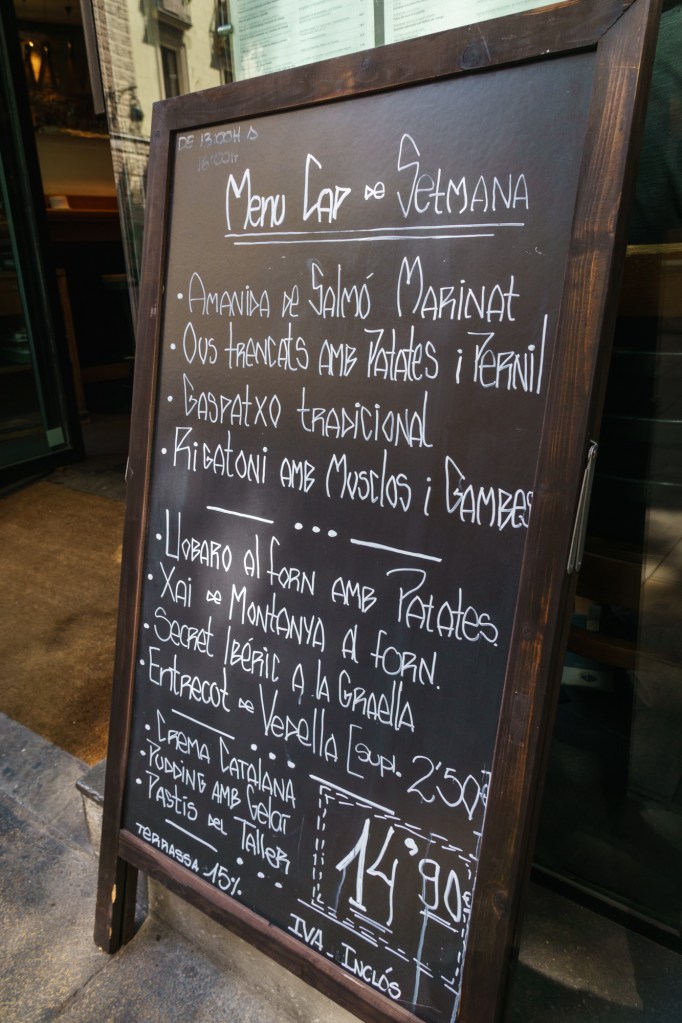 DE 13:00H A
16:00H
Menu Cap de Setmana
• Amanida de Salmó Marinat
• Ous trencats amb Patates i Pernil
• Gaspatxo tradicional
• Rigatoni amb Musclos i Gambes
• Llobaro al forn amb Patates.
• Xai de Montanya al forn.
• Secret Ibéric a la Graella
• Entrecot de Vedella [supl. 2'50€
• Crema Catalana
• Pudding amb Gelat
• Pastis del Taller
14'90€
TERRASSA 15%
IVA INCLÓS